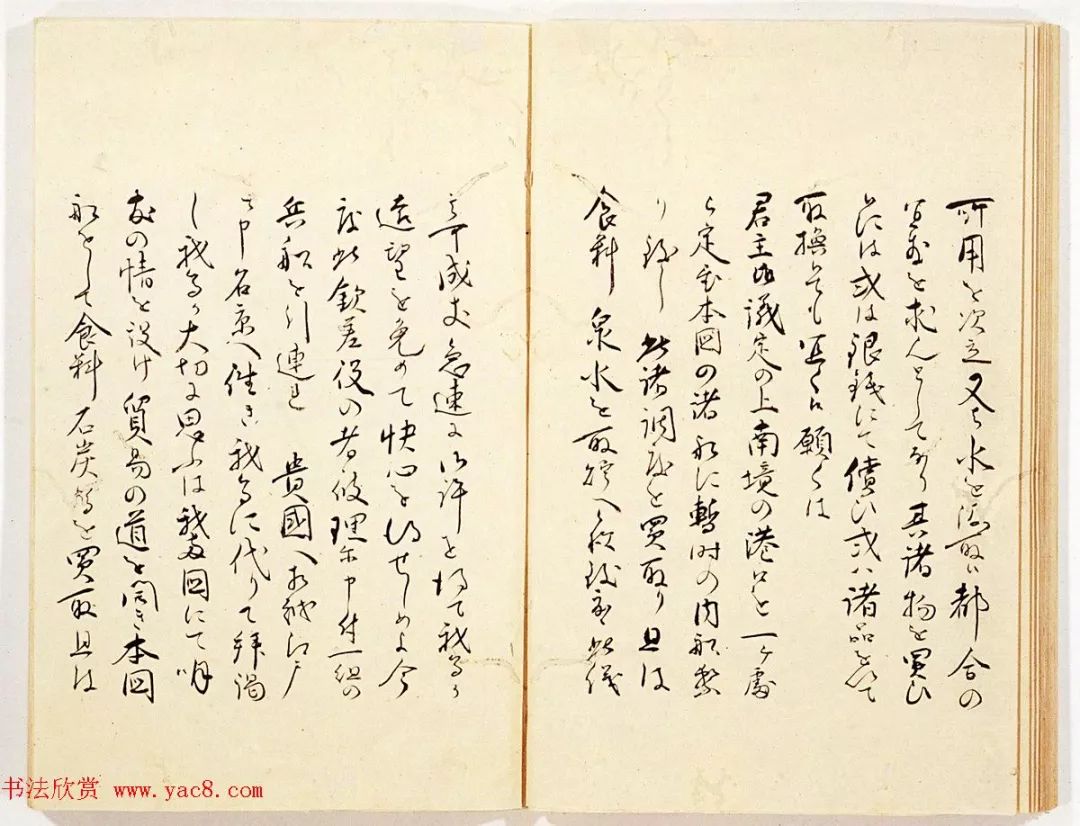 所用を次き又ら水を汲取ハ都合の
宜き所を求んとしてなり其諸物を買ひ
には或は銀銭にて償ひ或ハ諸品をいて
取換とも宜く候願くは
君主此議定の上南境の港口を一ケ處
定本国の諸船に暫時の内船繋
り致し此諸調度を買取り且は
食料泉水を取 此儀
可成丈急速に御許を得て我等か
遠望を免めて快心を得せしめよ今
茲此欽差役の者彼理に申付一組の
兵船を引連 貴國へ相越江戸
と申名京へ往き我等に代りて拝謁
し我等か大切に思ふは我両国にて明
友の情を設け貿易の道を開き本国
船をして食料石炭等を買取且は
书法欣赏 www.yac8.com